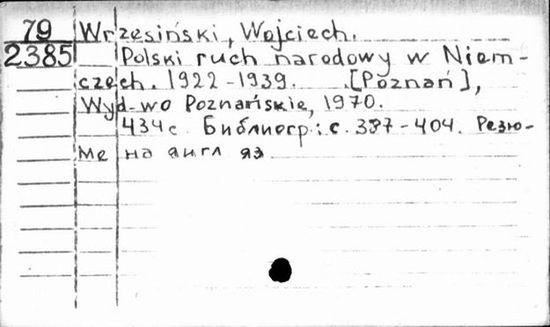 79 Wrzesiński, Wojciech.
2385 Polski ruch narodowy w Niem-
czech. 1922-1939. [Poznań],
Wyd-wo Poznańskie, 1970.
434 с. Библиогр: с. 387-404. Резю-
ме на англ яз